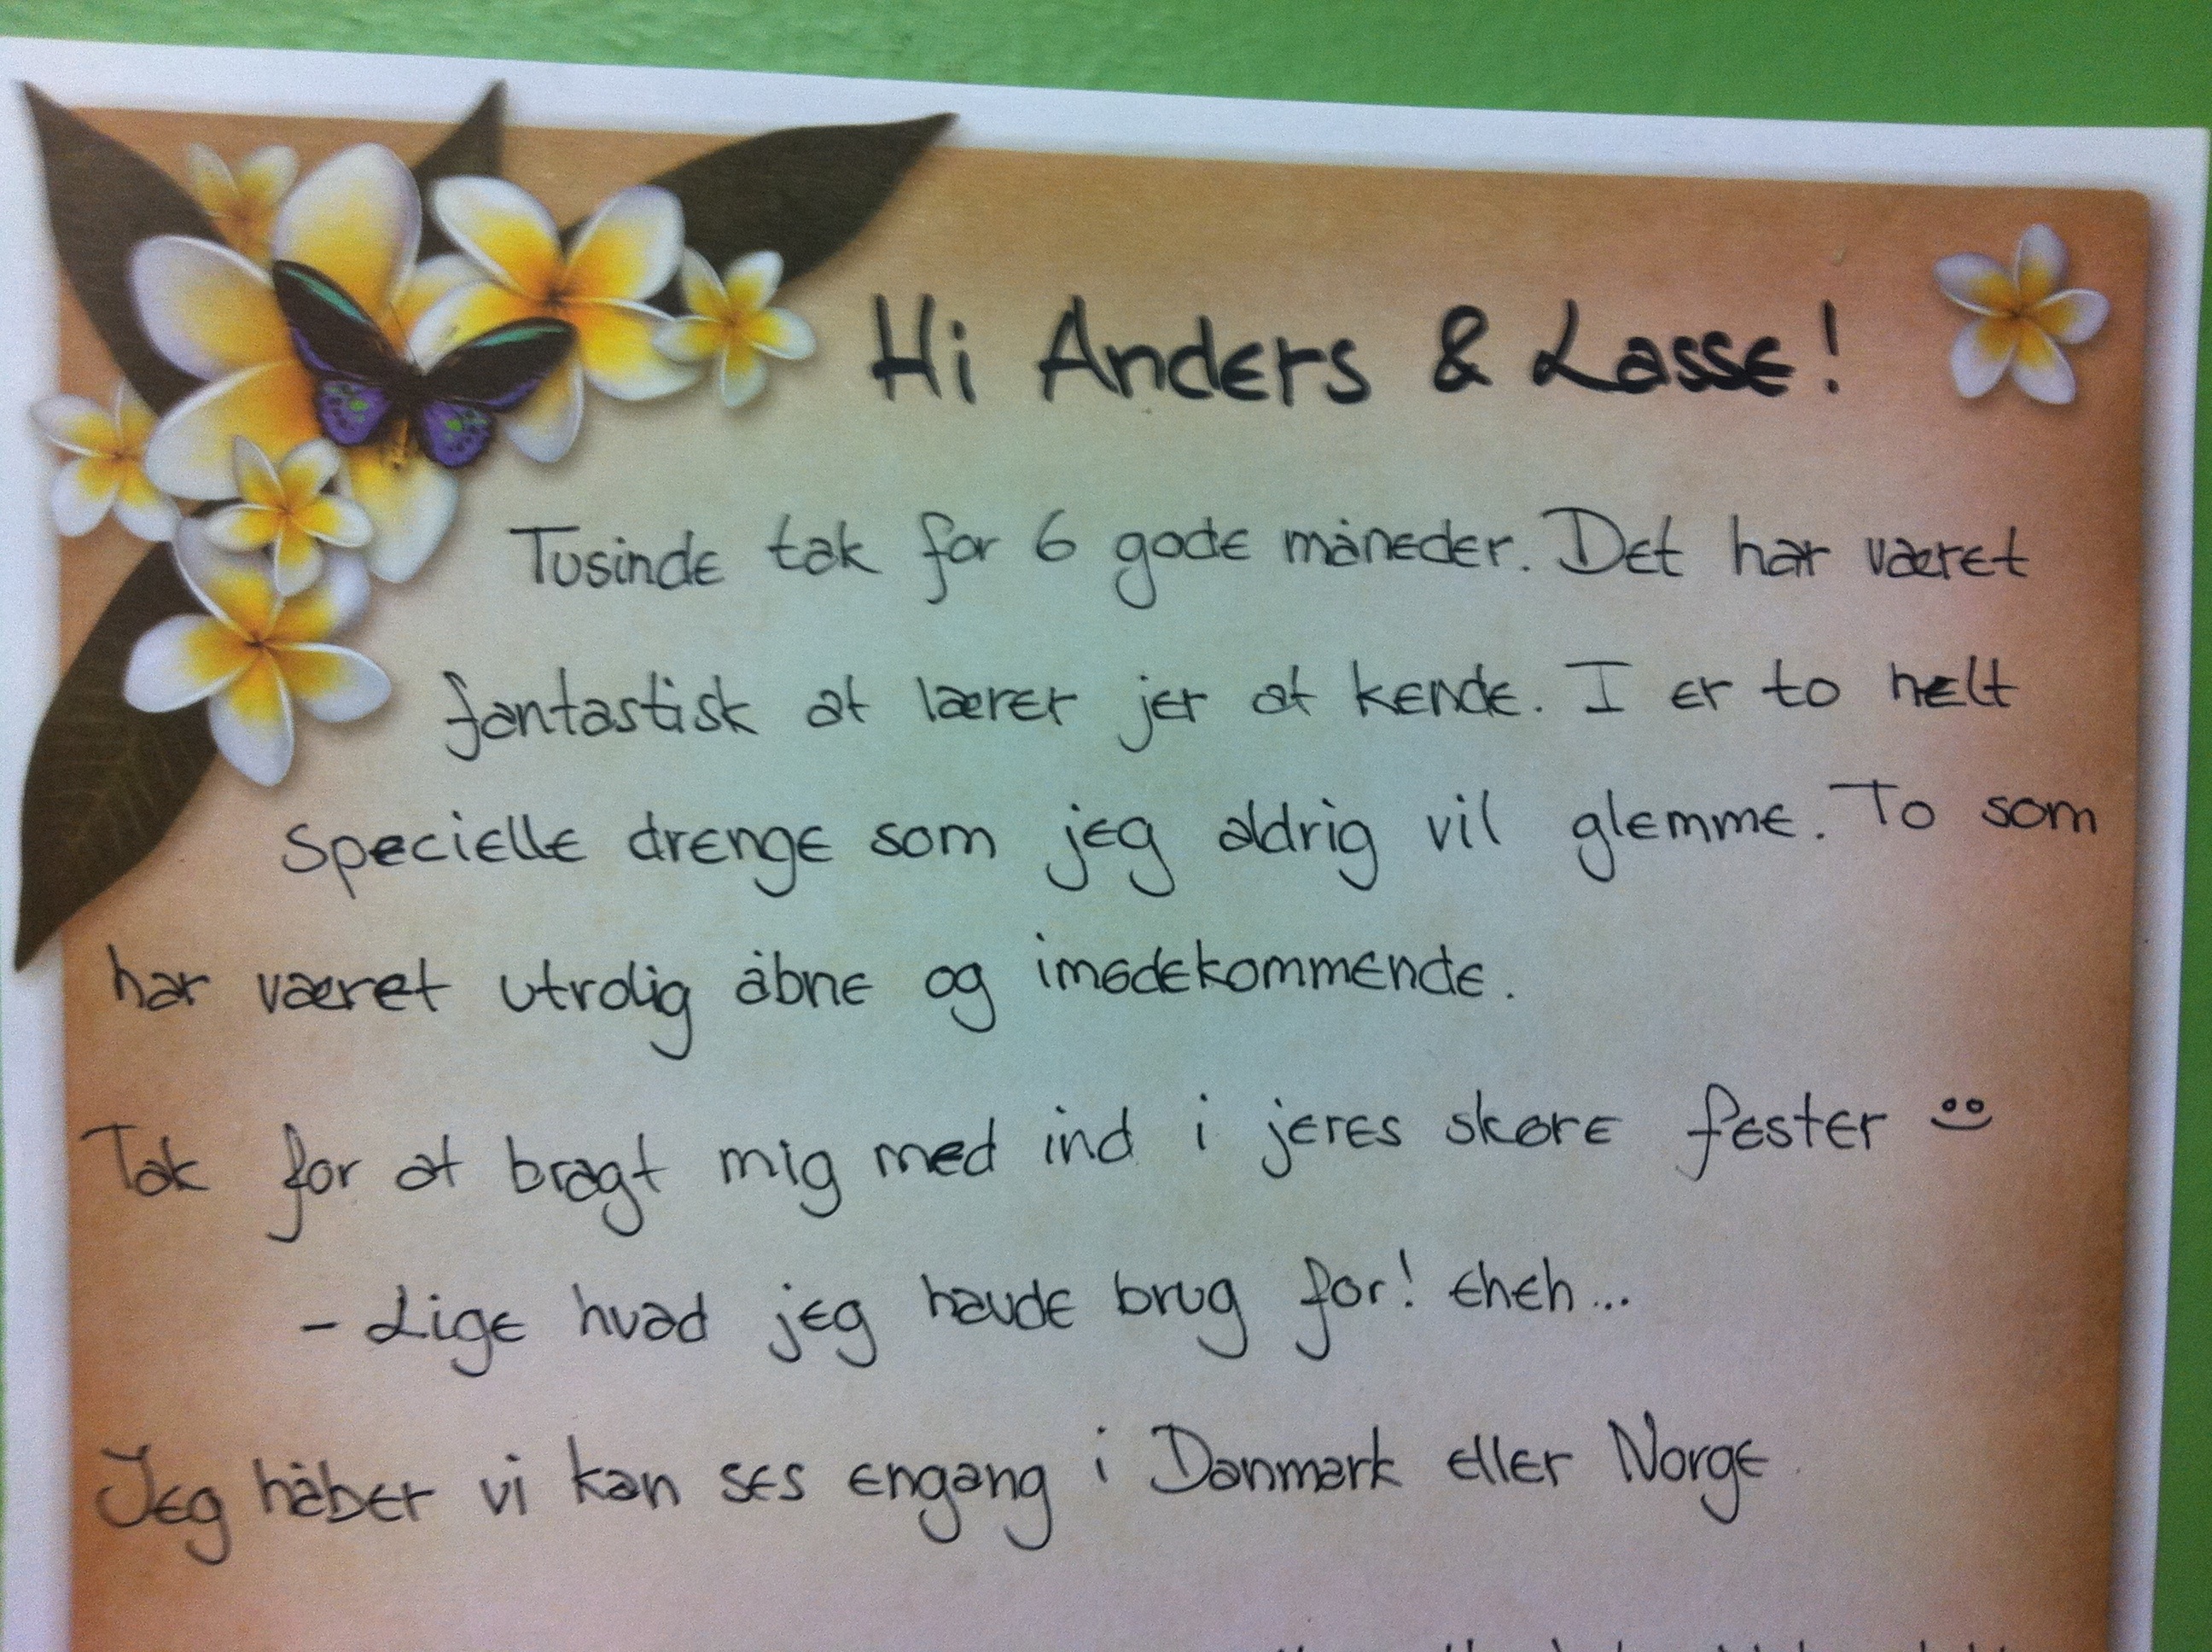 Hi Anders & Lasse!
Tusinde tak for 6 gode måneder. Det har været
fantastisk at lærer jer at kende. I er to helt
specielle drenge som jeg aldrig vil glemme. To som
har været utrolig åbne og imødekommende.
Tak for at bragt mig med ind i jeres skøre fester ☺
- Lige hvad jeg havde brug for! eheh...
Jeg håber vi kan ses engang i Danmark eller Norge